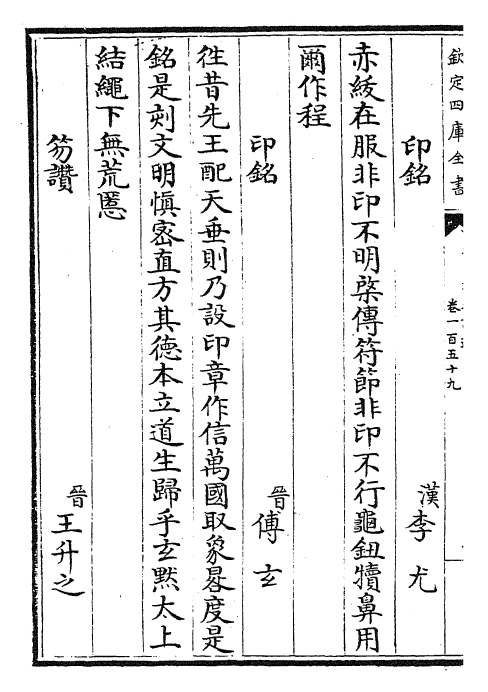 欽定四庫全書
卷一百五十九
印銘 漢李尤
赤紱在服非印不明棨傳符節非印不行龜鈕犢鼻用
爾作程
印銘 晉傅玄
徃昔先王配天垂則乃設印章作信萬國取象晷度是
銘是刻文明慎密直方其德本立道生歸乎玄黙太上
結繩下無荒慝
笏讚 晉王升之